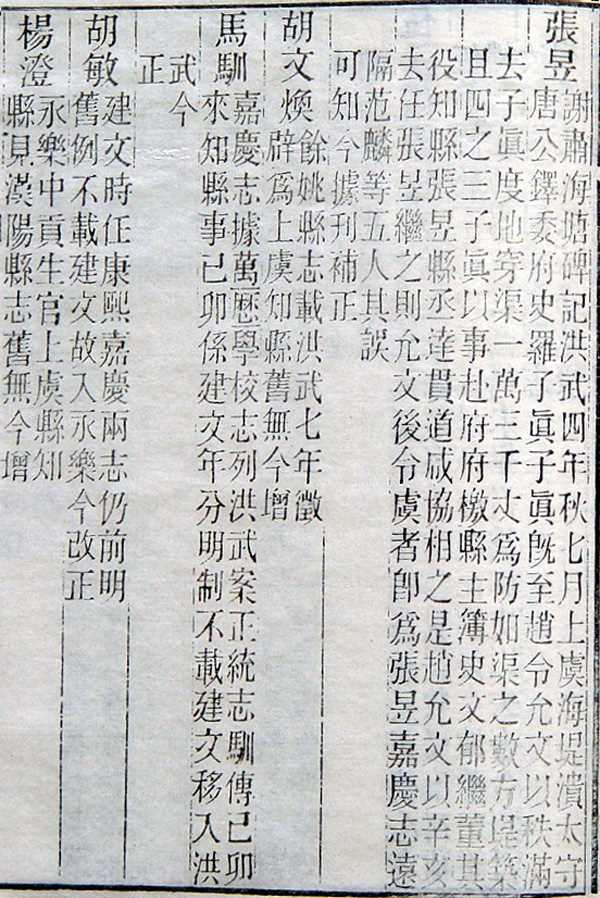 張昱
謝肅海塘碑記洪武四年秋七月上虞海堤潰太守
唐公鐸委府史羅子眞子眞旣至趙令允文以秩滿
去子眞度地穿渠一萬三千丈爲防如渠之數方堤築
且四之三子眞以事赴府府檄縣主簿史文郁繼董其
役知縣張昱縣丞逹貫道咸協相之是趙允文以辛亥
去任張昱繼之則允文後令虞者卽爲張昱嘉慶志遠
隔范麟等五人其誤
可知今據刊補正
胡文煥
餘姚縣志載洪武七年徵
辟爲上虞知縣舊無今增
馬馴
嘉慶志據萬厯學校志列洪武案正統志馴傳己卯
來知縣事己卯係建文年分明制不載建文移入洪
武今
正
胡敏
建文時任康熙嘉慶兩志仍前明
舊例不載建文故入永樂今改正
楊澄
永樂中貢生官上虞縣知
縣見漢陽縣志舊無今增